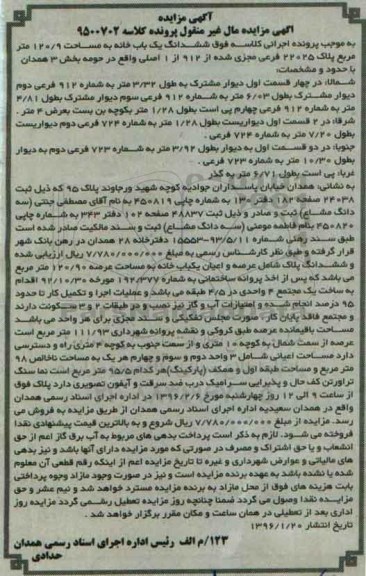 آگهی مزایده
آگهی مزایده مال غیر منقول پرونده کلاسه ۹۵۰۰۷۰۲
به موجب پرونده اجرائی کلاسه فوق ششدانگ یک باب خانه به مساحت ۱۲۰/۹ متر
مربع پلاک ۲۲۰۲۵ فرعی مجزی شده از ۹۱۲ از ۱ اصلی واقع در حومه بخش ۳ همدان
با حدود و مشخصات:
شمالا: در چهار قسمت اول دیوار مشترک به طول ۳/۳۲ متر به شماره ۹۱۲ فرعی دوم
دیوار مشترک بطول ۶/۰۳ متر به شماره ۹۱۲ فرعی سوم دیوار مشترک بطول ۴/۸۱
متر به شماره ۹۱۲ فرعی چهارم پی است بطول ۱/۲۸ متر بکوچه بن بست بعرض ۴ متر .
شرقا: در ۲ قسمت اول دیواریست بطول ۱/۲۸ متر به شماره ۷۲۴ فرعی دوم دیواریست
بطول ۷/۲۰ متر به شماره ۷۲۴ فرعی .
جنوبا: در دو قسمت اول به دیوار بطول ۳/۹۲ متر به شماره ۷۲۳ فرعی دوم به دیوار
بطول ۱۰/۳۰ متر به شماره ۷۲۳ فرعی .
غربا: پی است بطول ۶/۷۱ متر به گذر
به نشانی: همدان خیابان پاسداران جوادیه کوچه شهید ورجاوند پلاک ۹۵ که ذیل ثبت
۲۴۰۳۸ صفحه ۱۸۲ دفتر ۱۳۰ به شماره چاپی ۴۵۰۸۱۹ به نام آقای مصطفی جنتی (سه
دانگ مشاع) ثبت و صادر و ذیل ثبت ۴۸۸۳۷ صفحه ۱۰۲ دفتر ۳۴۳ به شماره چاپی
۴۵۰۸۲۰ بنام فاطمه مومنی (سه دانگ مشاع) ثبت و سند مالکیت صادر شده است
طبق سند رهنی شماره ۹۳/۵/۱۱-۱۵۵۵۳ دفترخانه ۲۸ همدان در رهن بانک شهر
قرار گرفته و طبق نظر کارشناس رسمی به مبلغ ۷/۷۸۰/۰۰۰/۰۰۰ ریال ارزیابی شده
و ششدانگ پلاک شامل عرصه و اعیان یکباب خانه به مساحت عرصه ۱۲۰/۹۰ متر مربع
می باشد که پس از اخذ پروانه ساختمانی به شماره ۱۹۲،۳۷۷ مورخه ۹۲/۱۰/۳۰ اقدام
به ساخت یک مجتمع ۴ واحدی در ۴/۵ طبقه می باشد و عملیات اجرا و تکمیل کار تا حدود
۹۵ درصد انجام شده و امتیازات آب و گاز نیز نصب و در طبقات ۲ و ۳ سکونت دارند
و مجتمع فاقد پایان کار، صورت مجلس تفکیکی و سند مجزی برای هر واحد می باشد
مساحت باقیمانده عرصه طبق کروکی و نقشه پروانه شهرداری ۱۱۱/۹۳ متر مربع است
عرصه از سمت شمال به کوچه ۱۰ متری و از سمت جنوب به کوچه ۴ متری راه و دسترسی
دارد مساحت اعیانی شامل ۳ واحد دوم و سوم و چهارم هر یک به مساحت ناخالص ۹۸
متر مربع و مساحت طبقه اول و همکف (پارکینگ)هر کدام ۹۵/۵ متر مربع است نما سنگ
تراورتن کف حال و پذیرایی سرامیک درب ضد سرقت و آیفون تصویری دارد پلاک فوق
از ساعت ۹ الی ۱۲ روز چهارشنبه مورخ ۱۳۹۶/۲/۶ در اداره اجرای اسناد رسمی همدان
واقع در همدان سعیدیه اداره اجرای اسناد رسمی همدان از طریق مزایده به فروش می
رسد. مزایده از مبلغ ۷/۷۸۰/۰۰۰/۰۰۰ ریال شروع و به بالاترین قیمت پیشنهادی نقدا
فروخته می شود. لازم به ذکر است پرداخت بدهی های مربوط به آب برق گاز اعم از حق
انشعاب و یا حق اشتراک و مصرف در صورتی که مورد مزایده دارای آنها باشد و نیز بدهی
های مالیاتی و عوارض شهرداری و غیره تا تاریخ مزایده اعم از اینکه رقم قطعی آن معلوم
شده یا نشده باشد به عهده برنده مزایده است و نیز در صورت وجود مازاد وجوه پرداختی
بابت هزینه های فوق از محل مازاد به برنده مزایده مسترد خواهد شد و نیم عشر و حق
مزایده نقدا وصول می گردد ضمنا چنانچه روز مزایده تعطیل رسمی گردد مزایده روز
اداری بعد از تعطیلی در همان ساعت و مکان مقرر برگزار خواهد شد .
تاریخ انتشار ۱۳۹۶/۱/۲۰
۱۲۳/م الف رئیس اداره اجرای اسناد رسمی همدان
حدادی